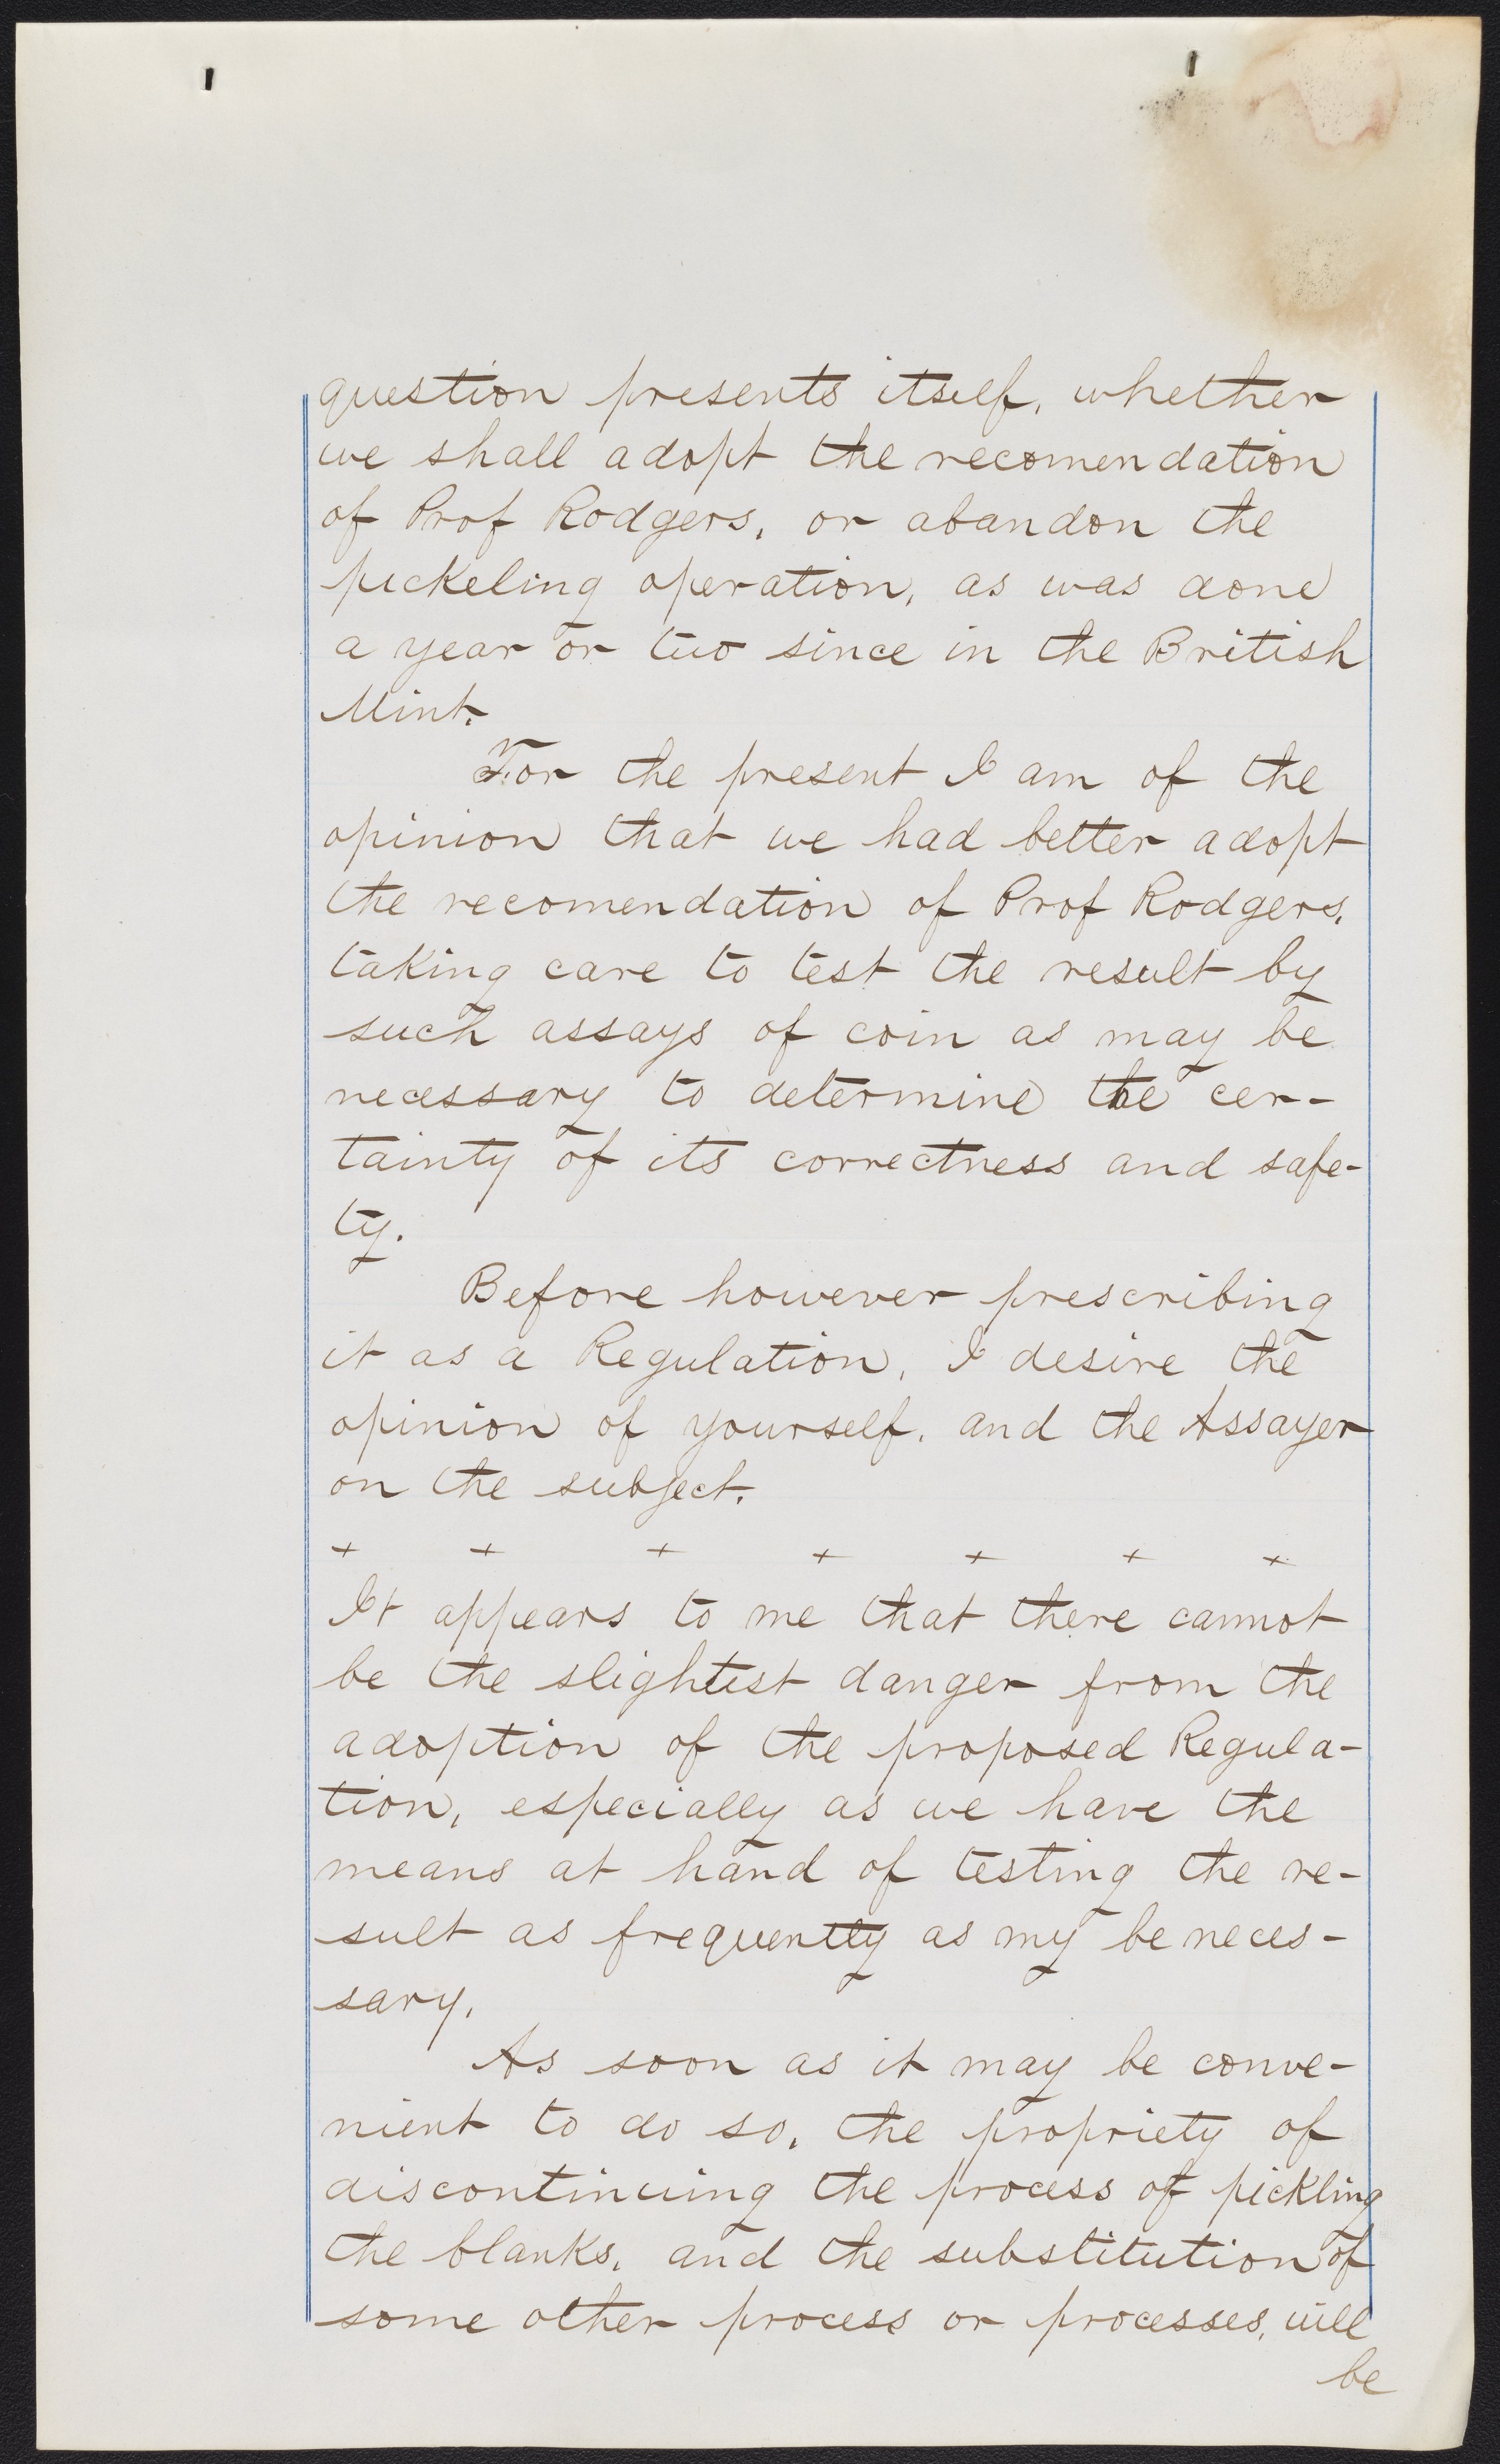 question presents itself, whether
we shall adopt the recomendation
of Prof Rodgers, or abandon the
pickeling operation, as was done
a year or two since in the British
Mint.
For the present I am of the
opinion that we had better adopt
the recomendation of Prof Rodgers,
taking care to test the result by
such assays of coin as may be
necessary to determine the cer-
tainty of its correctness and safe-
ty.
Before however prescribing
it as a Regulation, I desire the
opinion of yourself, and the Assayer
on the subject.
+ + + + + + +
It appears to me that there cannot
be the slightest danger from the
adoption of the proposed Regula-
tion, especially as we have the
means at hand of testing the re-
sult as frequently as my be neces-
sary.
As soon as it may be conve-
nient to do so, the propriety of
discontinuing the process of pickling
the blanks, and the substitution of
some other process or processes, will
be